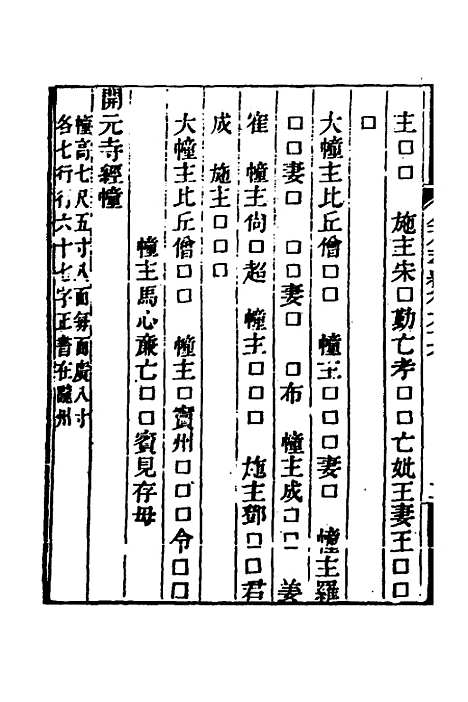 主□□　施主宋□勤亡孝□□亡妣王妻王□□
□
大幢主比丘僧□□　幢主□□□妻□　幢主羅
□□妻□　□□妻□　□布　幢主成□□　姜
崔　幢主尙□超　幢主□□□　施主鄧□□君
成　施主□□□
大幢主比丘僧□□　幢主□賓州□□□令□□
幢主馬心　亡□□賓見存母
開元寺經幢
幢高七尺五寸八面每面廣八寸
各七行行六十七字正書在隴州